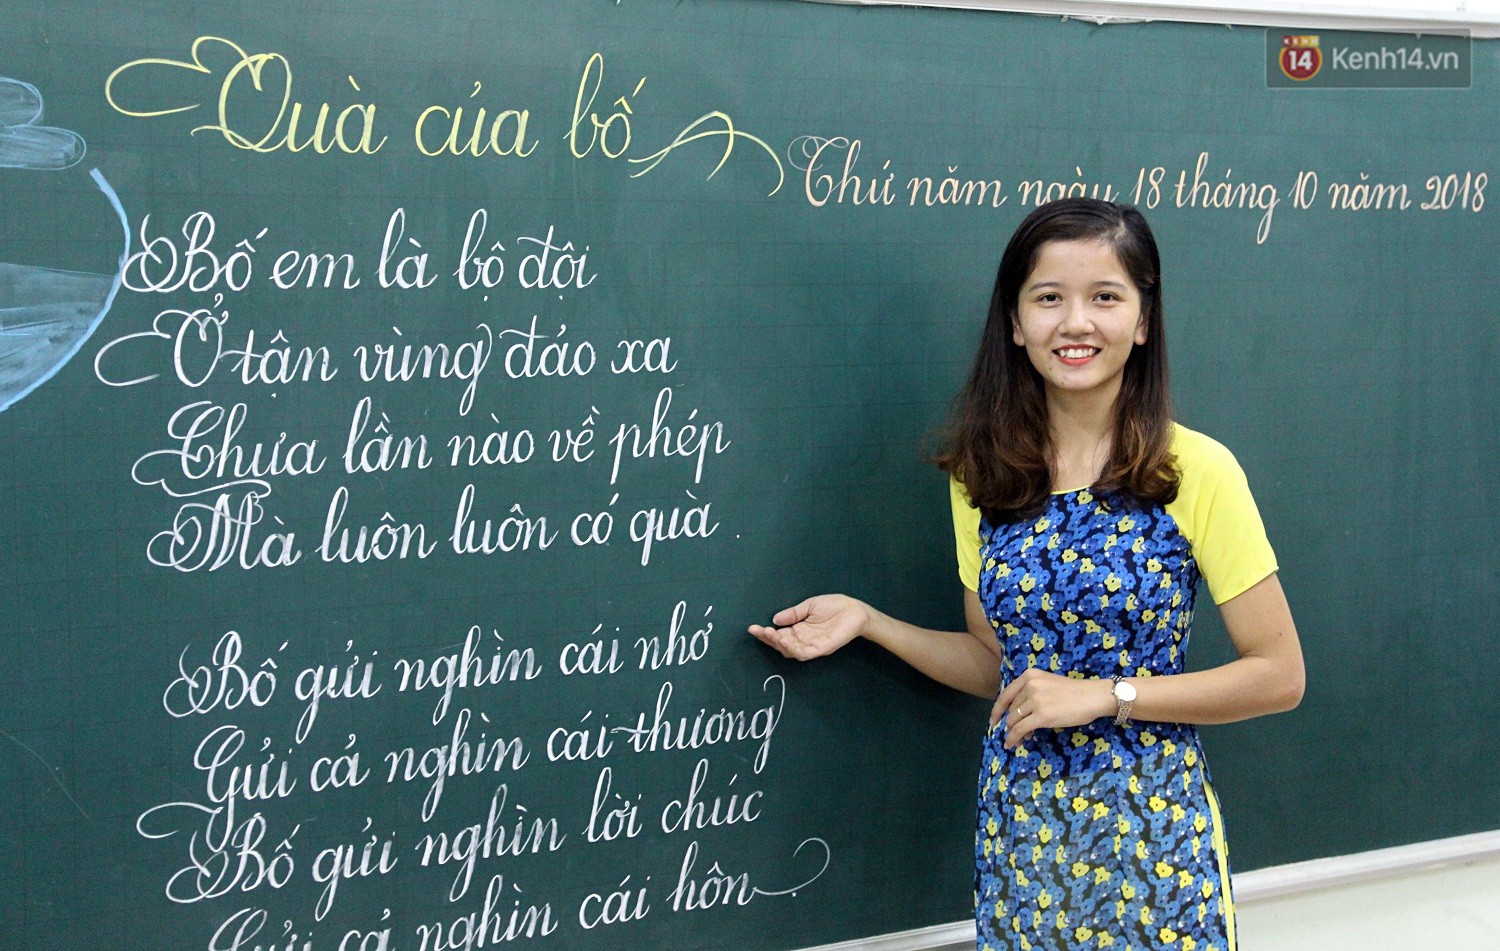 KENH 14 Kenh14.vn
Quà của bố
Thứ năm ngày 18 tháng 10 năm 2018
Bố em là bộ đội
Ở tận vùng đảo xa
Chưa lần nào về phép
Mà luôn luôn có quà.
Bố gửi nghìn cái nhớ
Gửi cả nghìn cái thương
Bố gửi nghìn lời chúc
Gửi cả nghìn cái hôn.